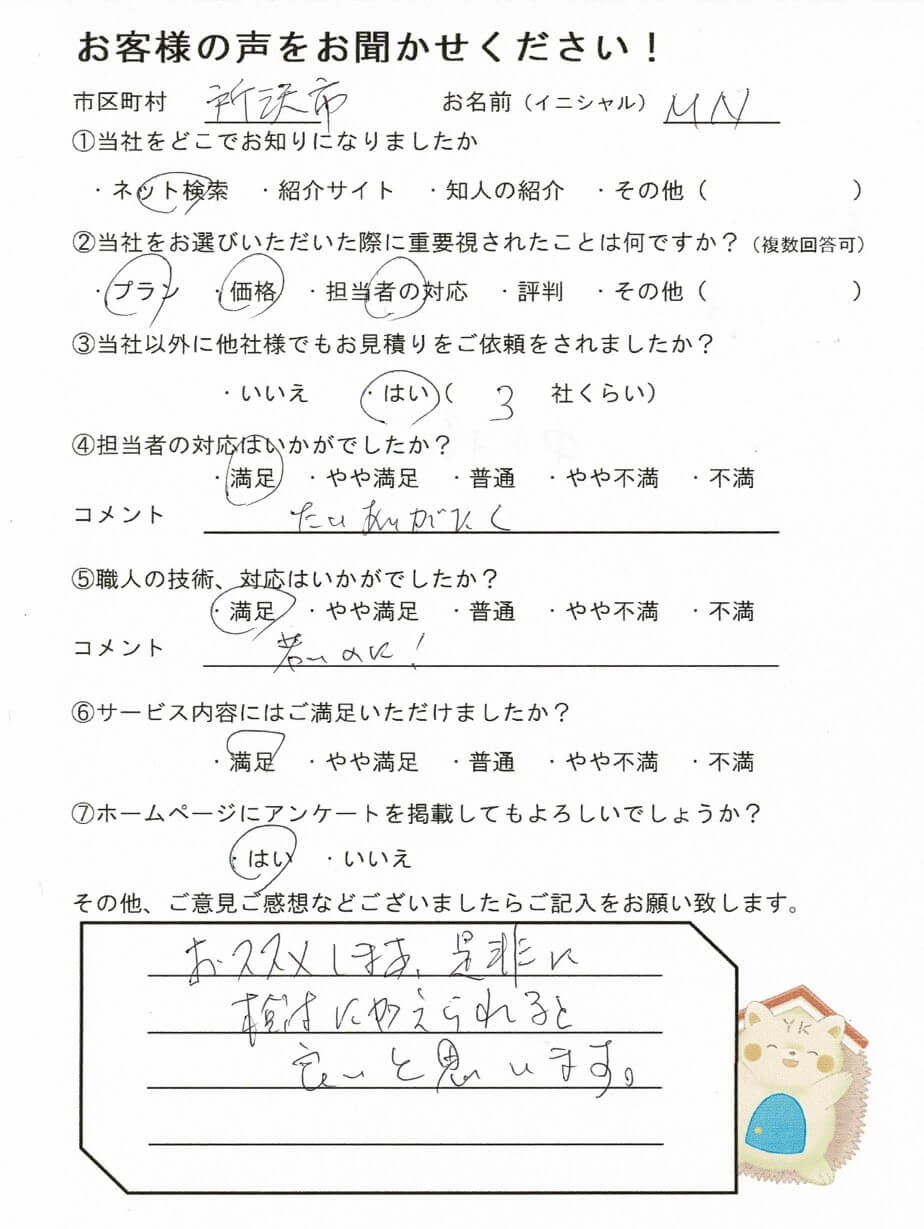 お客様の声をお聞かせください！
市区町村 所沢市 お名前（イニシャル） MN
①当社をどこでお知りになりましたか
・ネット検索 ・紹介サイト ・知人の紹介 ・その他（ ）
②当社をお選びいただいた際に重要視されたことは何ですか？（複数回答可）
・プラン ・価格 ・担当者の対応 ・評判 ・その他（ ）
③当社以外に他社様でもお見積りをご依頼をされましたか？
・いいえ ・はい（ 3 社くらい）
④担当者の対応はいかがでしたか？
・満足 ・やや満足 ・普通 ・やや不満 ・不満
コメント ありがたく
⑤職人の技術、対応はいかがでしたか？
・満足 ・やや満足 ・普通 ・やや不満 ・不満
コメント 若いのに！
⑥サービス内容にはご満足いただけましたか？
・満足 ・やや満足 ・普通 ・やや不満 ・不満
⑦ホームページにアンケートを掲載してもよろしいでしょうか？
・はい ・いいえ
その他、ご意見ご感想などございましたらご記入をお願い致します。
おススメします、是非に
検討に加えられると
良いと思います。
YK